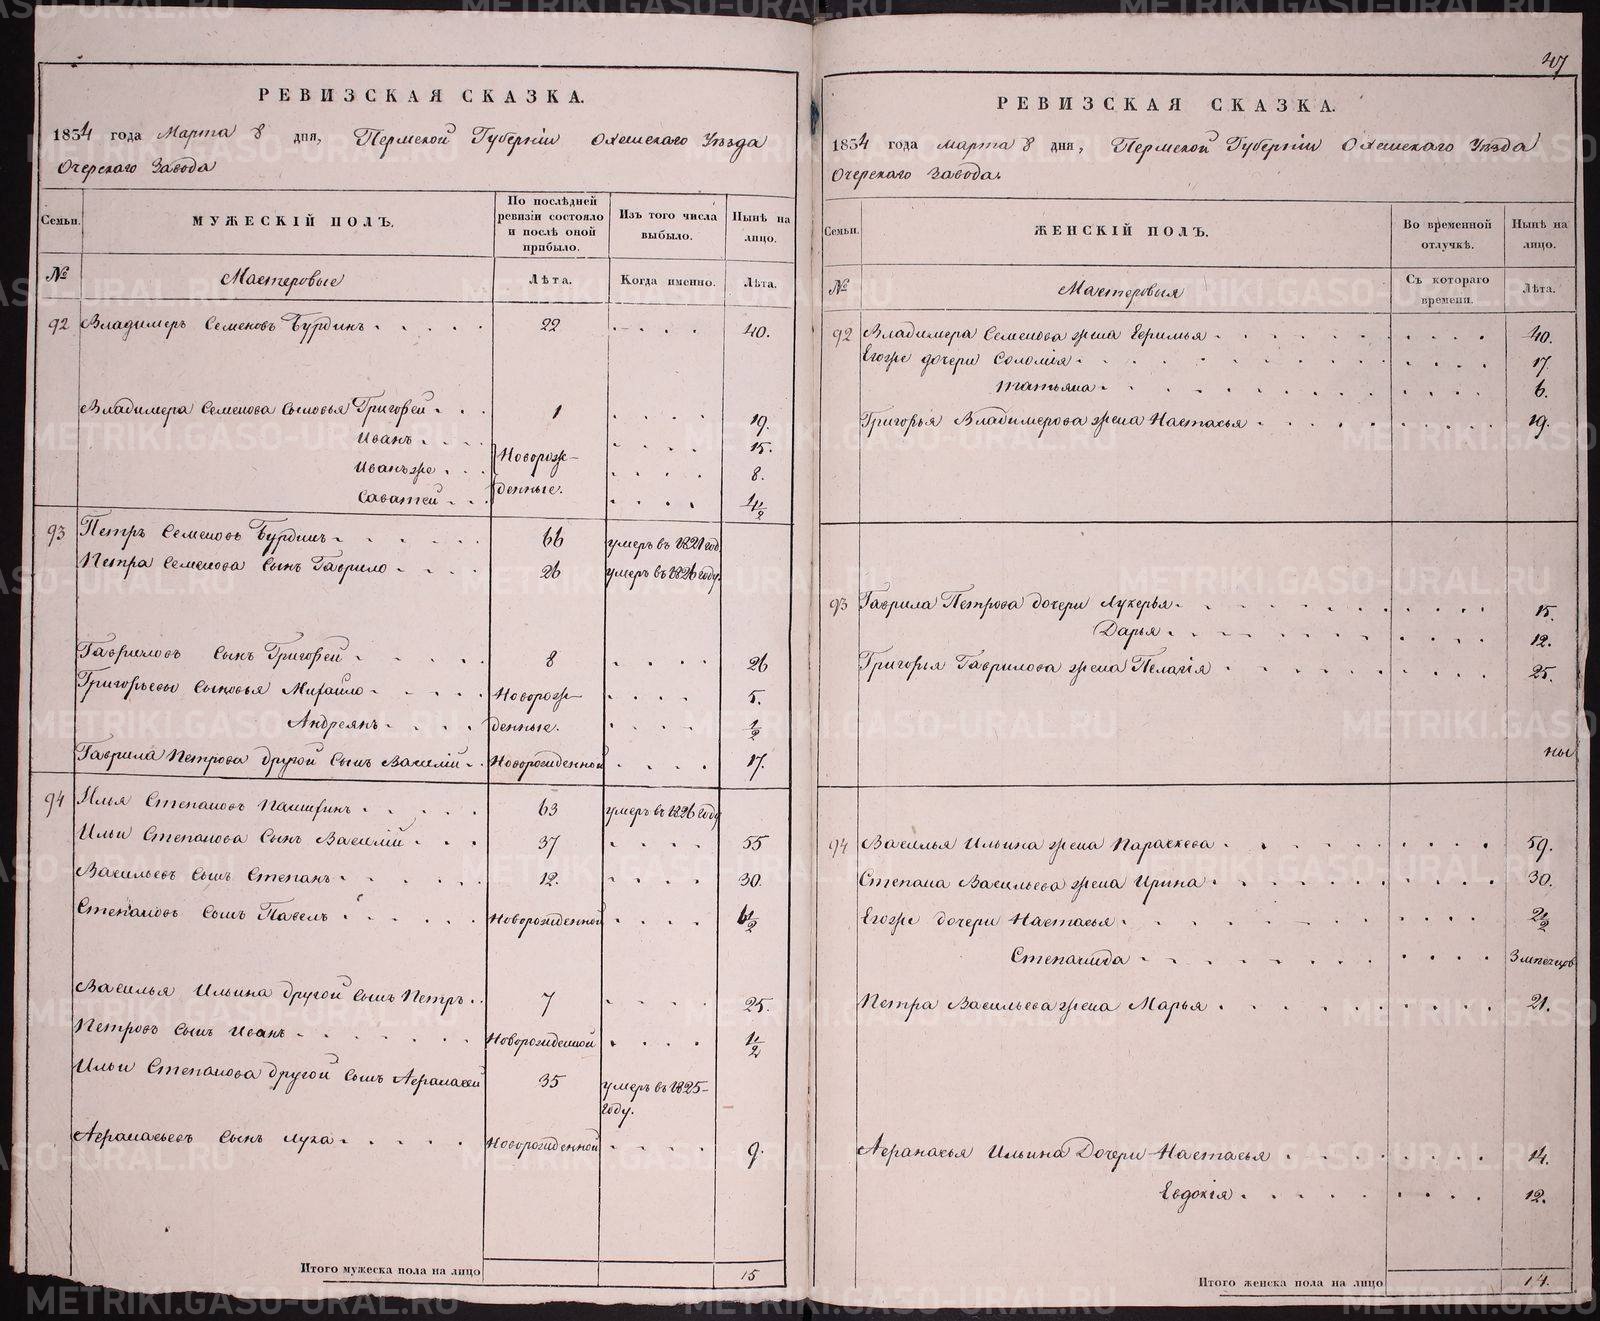 РЕВИЗСКАЯ СКАЗКА.
1834 года Марта 8 дня, Пермской Губерніи Оханскаго Уѣзда
Очерскаго Завода
Семьи. МУЖЕСКІЙ ПОЛЪ. По послѣдней ревизіи состояло и послѣ оной прибыло. Изъ того числа выбыло. Нынѣ на лицо.
№ Мастеровые Лѣта. Когда именно. Лѣта.
92 Владимеръ Семеновъ Бурдинъ 22 40.
Владимера Семенова сыновья Григорей 1 19.
Иванъ Новорож- 15.
Иванъ же 8.
Саватей денные. 1½
93 Петръ Семеновъ Бурдинъ 66 умеръ въ 1821 год
Петра Семенова сынъ Гаврило 26 умеръ въ 1826 году.
Гавриловъ сынъ Григорей 8 26
Григорьевы сыновья Михайло Новорож- 5.
Андреянъ денные. ½
Гаврила Петрова другой сынъ Василій Новорожденной 17.
94 Илья Степановъ 63 умеръ въ 1826 году
Ильи Степанова сынъ Василій 37 55
Васильевъ сынъ Степанъ 12. 30.
Степановъ сынъ Павелъ Новорожденной 6½
Василья Ильина другой сынъ Петръ 7 25.
Петровъ сынъ Иванъ Новорожденной 1½
Ильи Степанова другой сынъ Афанасей 35 умеръ въ 1825-
году.
Афанасьевъ сынъ Лука Новорожденной 9.
Итого мужеска пола на лицо 15
47
РЕВИЗСКАЯ СКАЗКА.
1834 года марта 8 дня, Пермской Губерніи Оханскаго Уѣзда
Очерскаго Завода.
Семьи. ЖЕНСКІЙ ПОЛЪ. Во временной отлучкѣ. Нынѣ на лицо.
№ Мастеровыя Съ котораго времени. Лѣта.
92 Владимера Семенова жена Ефимья 40.
Егоже дочери Соломія 17
Татьяна 6.
Григорья Владимерова жена Настасья 19.
93 Гаврила Петрова дочери Лукерья 15.
Дарья 12.
Григорья Гаврилова жена Пелагія 25.
ны
94 Василья Ильина жена Параскева 59.
Степана Васильева жена Ирина 30.
Егоже дочери Настасья 2½
Степанида 3 мѣсецовъ
Петра Васильева жена Марья 21.
Афанасья Ильина Дочери Настасья 14.
Евдокія 12.
Итого женска пола на лицо 14.
METRIKI.GASO-URAL.RU